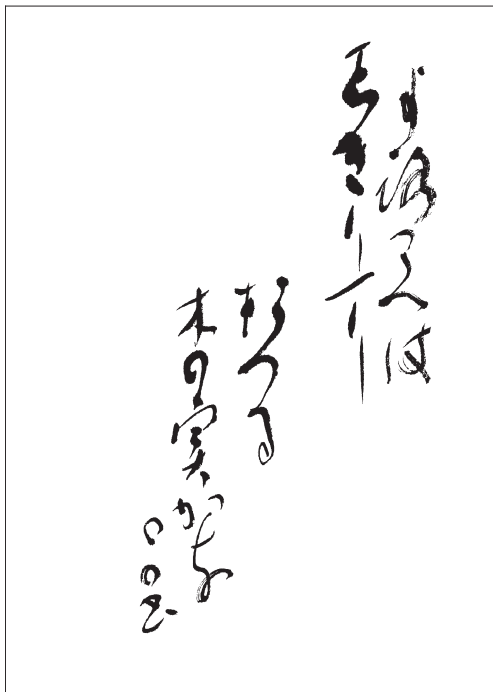 よろこへは
しきりに
おつる
木の実かな
風生